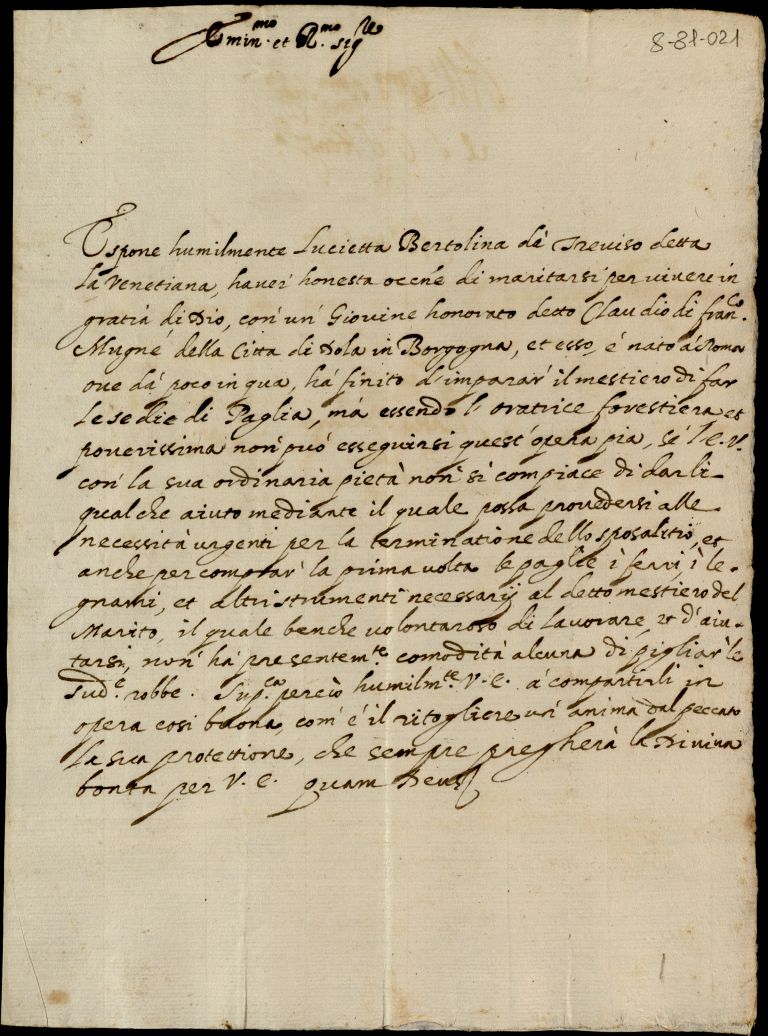 Emin.mo et R.mo sig.re
8-81-021
Espone humilmente Lucietta Bertolina dà Treviso detta
La Venetiana, haver' honesta occ.ne di maritarsi per vivere in
gratia di Dio, con' un' Giovine honorato detto Claudio di fran.co
Mugnè della Citta di Dola in Borgogna, et esso, è nato à Roma
ove dà poco in qua, hà finito d'imparar' il mestiero di far
le sedie di Paglia, mà essendo l'oratrice forestiera et
poverissima non può esseguirsi quest' opera pia, sè l'E.V.
con la sua ordinaria pietà non si compiace di darli
qualche aiuto mediante il quale possa provedersi alle
necessità urgenti per la terminatione dello sposalitio, et
anche per comprar' la prima volta le paglie i ferri i le-
gnami, et altri strumenti necessarij al detto mestiero del
Marito, il quale benche volontaroso di lavorare, et d'aiu-
tarsi, non' hà presentem.te comodità alcuna di pigliar' le
sud.e robbe. Sup.ca perciò humilm.te V.E. à compartirli in
opera così buona, com' è il ritogliere un' anima dal peccato
la sua protettione, che sempre pregherà la Divina
bontà per V.E. quam Deus